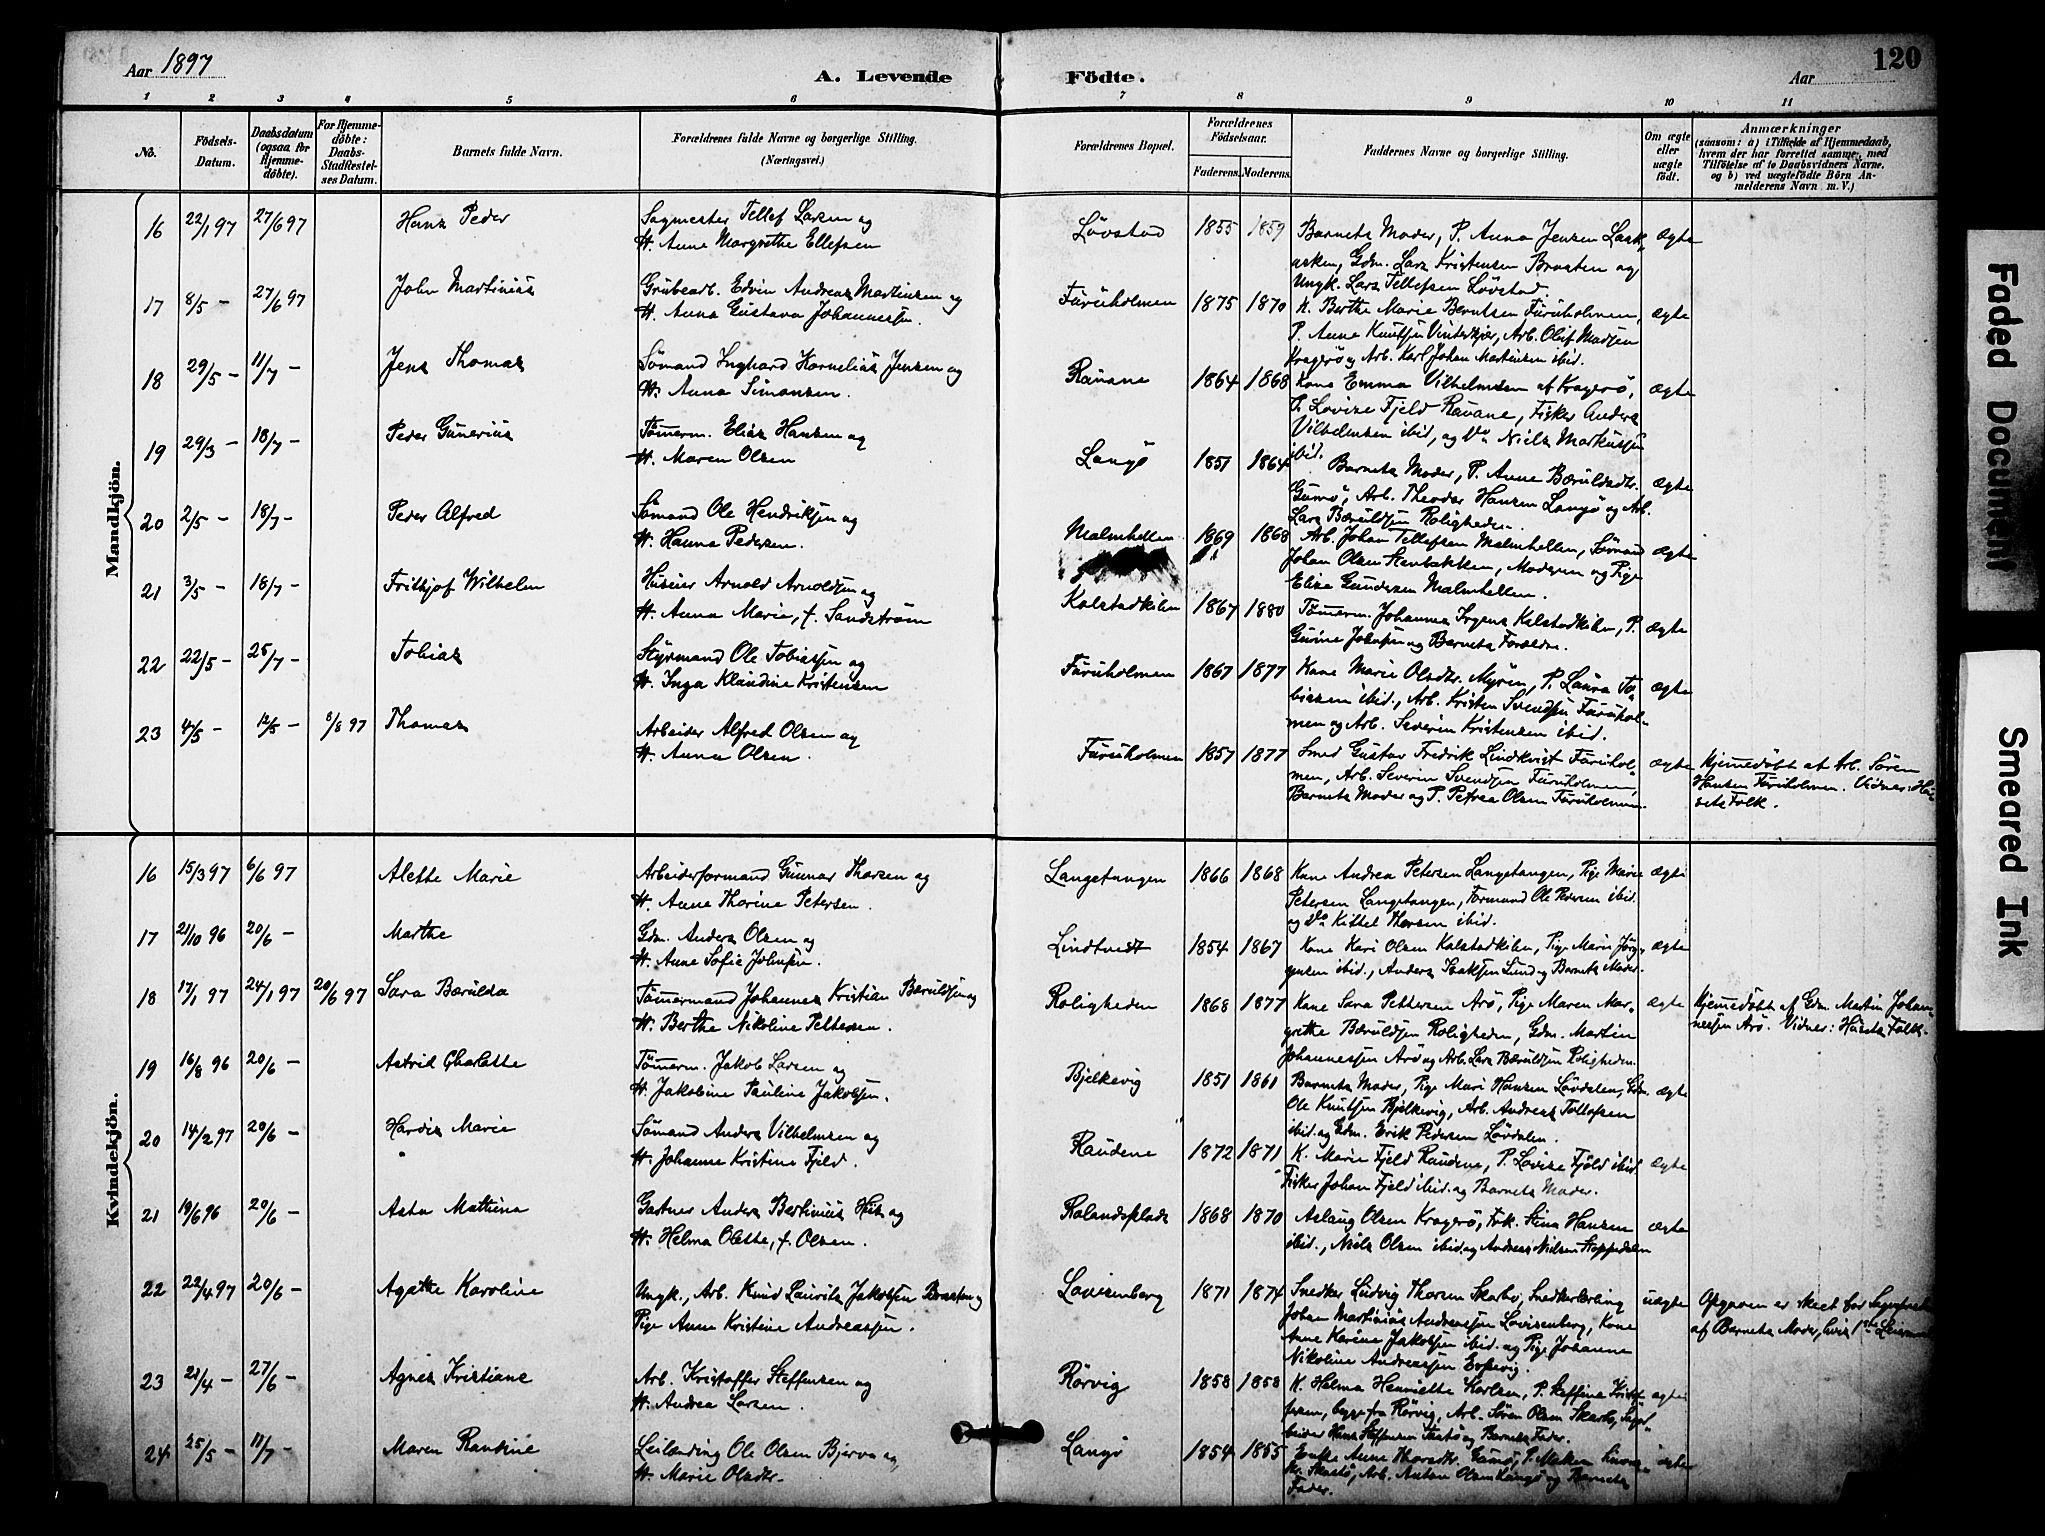 120
Aar 1897
A. Levende Födte.
Aar
1 2 3 4 5 6 7 8 9 10 11
No.
Födsels-
Datum.
Daabsdatum
(ogsaa for
Hjemme-
döbte).
For Hjemme-
döbte:
Daabs-
Stadfæstel-
ses Datum.
Barnets fulde Navn.
Forældrenes fulde Navne og borgerlige Stilling.
(Næringsvei.)
Forældrenes Bopæl.
Forældrenes
Födselsaar.
Faderens. Moderens.
Faddernes Navne og borgerlige Stilling.
Om ægte
eller
uægte
födt.
Anmærkninger
(saasom: a) i Tilfælde af Hjemmedaab,
hvem der har forrettet samme, med
Tilföielse af to Daabsvidners Navne,
og b) ved uægtefödte Börn An-
melderens Navn m. V.)
Mandkjön.
16 22/1 97 27/6 97 Hans Peder Sagmester Tellef Larsen og Løvstad 1855 1859 Barnets Moder, P. Anna Jensen ægte
H. Anne Margrethe Ellefsen
Gdm. Lars Kristensen Braaten og
Ungk. Lars Tellefsen Løvstad.
17 8/5 – 27/6 97 John Martinius Grubearb. Edvin Andreas Martinsen og Furuholmen 1875 1870 K. Berthe Marie Berntsen Furuholmen, ægte
H. Anna Gustava Johannessen.
P. Anne Knutsen Vinterkjær, Arb. Oluf Madsen
Kragerø og Arb. Karl Johan Martinsen ibid.
18 29/5 – 11/7 – Jens Thomas Sømand Inghard Kornelius Jensen og Rauane 1864 1868 Kone Emma Vilhelmsen af Kragerø, ægte
H. Anna Simonsen.
P. Lovise Fjeld Rauane, Fisker Anders
Vilhelmsen ibid, og Do Niels Markussen
ibid.
19 29/3 – 18/7 – Peder Gunerius Tømerm. Elias Hansen og Langø 1851 1864 Barnets Moder, P. Anne Bæruldsdtr. ægte
H. Maren Olsen
Gumø, Arb. Theodor Hansen Langø og Arb.
Lars Bæruldsen Roligheden.
20 2/5 – 18/7 – Peder Alfred Sømand Ole Hendriksen og Malmhellen 1869 1868 Arb. Johan Tellefsen Malmhellen, Sømand ægte
H. Hanna Pedersen.
Johan Olsen Stenbakken, Moderen og Pige
Elise Gundersen Malmhellen.
21 3/5 – 18/7 – Frithjof Wilhelm Huseier Arnold Arnoldsen og Kalstadkilen 1867 1880 Tømerm. Johannes Irgens Kalstadkilen, P. ægte
H. Anna Marie, f. Sandstrøm
Gurine Johnsen og Barnets Forældre.
22 22/5 – 25/7 – Tobias Styrmand Ole Tobiassen og Furuholmen 1867 1877 Kone Marie Olsdtr. Myren, P. Laura To- ægte
H. Inga Klaudine Kristensen
biassen ibid., Arb. Kristen Svendsen Furuhol-
men og Arb. Severin Kristensen ibid.
23 4/5 – 12/5 – 8/8 97 Thomas Arbeider Alfred Olsen og Furuholmen 1857 1877 Smed Gustav Fredrik Lindkvist Furuhol- ægte Hjemmedøbt af Arb. Søren
H. Anna Olsen.
men, Arb. Severin Svendsen Furuholmen, Hansen Furuholmen. Vidner: Hu-
Barnets Moder og P. Petrea Olsen Furuholmen. sets Folk.
Kvindekjön.
16 15/3 97 6/6 97 Alette Marie Arbeiderformand Gunnar Thorsen og Langetangen 1866 1868 Kone Andrea Petersen Langetangen, Pige Marie ægte
H. Anne Thorine Petersen.
Petersen Langetangen, Formand Ole Petersen ibid.
og Do Kittel Thorsen ibid.
17 21/10 96 20/6 – Marthe Gdm. Anders Olsen og Lindtvedt 1854 1867 Kone Kari Olsen Kalstadkilen, Pige Marie Jørg- ægte
H. Anne Sofie Johnsen.
ensen ibid., Anders Isaksen Lund og Barnets Moder.
18 17/1 97 24/1 97 20/6 97 Sara Bærulda Tømermand Johannes Kristian Bæruldsen og Roligheden 1868 1877 Kone Sara Pettersen Arø, Pige Maren Mar- ægte Hjemmedøbt af Gdm. Martin Johan-
H. Berthe Nikoline Pettersen.
grethe Bæruldsen Roligheden, Gdm. Martin nessen Arø. Vidner: Husets Folk.
Johannessen Arø og Arb. Lars Bæruldsen Roligheden.
19 16/8 96 20/6 – Astrid Charlotte Tømerm. Jakob Larsen og Bjelkevig 1851 1861 Barnets Moder, Pige Mari Hansen Løvdalen, Gdm. ægte
H. Jakobine Pauline Jakobsen.
Ole Knutsen Bjelkevig, Arb. Andreas Tollefsen
ibid. og Gdm. Erik Pedersen Løvdalen.
20 14/2 97 20/6 – Hardis Marie Sømand Anders Vilhelmsen og Raudene 1872 1871 K. Marie Fjeld Raudene, P. Lovise Fjeld ibid. ægte
H. Johanne Kristine Fjeld.
Fisker Johan Fjeld ibid. og Barnets Moder.
21 19/6 96 20/6 – Asta Mathina Gartner Anders Bertinius Hus og Rolandsplads 1868 1870 Aslaug Olsen Kragerø, Frk. Stina Hansen ægte
H. Helma Olette, f. Olsen.
ibid., Niels Olsen ibid. og Andreas Nielsen Stoppedalen
22 22/4 97 20/6 – Agathe Karoline Ungk., Arb. Knud Laurits Jakobsen Braaten og Lovisenberg 1871 1874 Snedker Ludvig Thorsen Skarbo, Snedkerlærling uægte Opgaven er skeet for Sognepræsten
Pige Anne Kristine Andreassen.
Johan Martinius Andreassen Lovisenberg, Kone af Barnets Moder, hvis 1ste Leiermaal
Anne Karine Jakobsen ibid. og Pige Johanne
Nikoline Andreassen
23 21/4 – 27/6 – Agnes Kristiane Arb. Kristoffer Steffensen og Rørvig 1858 1858 K. Helma Henriette Karlsen, P. Steffine Kristof- ægte
H. Andrea Larsen.
fersen, begge fra Rørvig, Arb. Søren Olsen Skarbo,
Hans Steffensen og Barnets Fader.
24 25/5 – 11/7 – Maren Rantine Leilending Ole Olsen Bjerva og Langø 1854 1855 Enke Anne Thorsdtr. Gumø, P. ægte
H. Marie Olsdtr.
Skaatø, Arb. Anton Olsen Langø og Barnets
Fader.
Faded Document
Smeared Ink